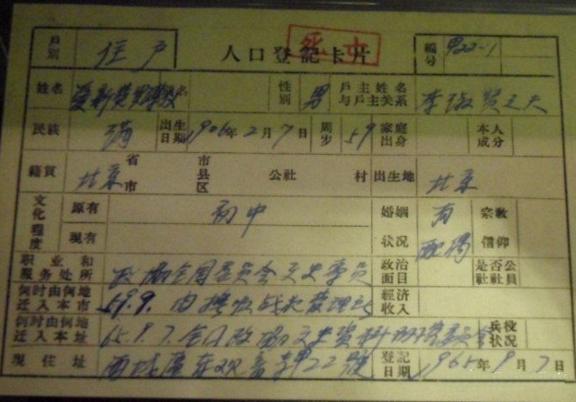 户别 住户 人口登记卡片 死亡 编号
姓名 爱新觉罗 性别 男 户主姓名与户主关系 李淑贤之夫
民族 满 出生日期 1906年2月7日 周岁 59 家庭出身 本人成分
籍贯 北京 省市 市县区 公社 村 出生地 北京
文化程度 原有 初中 婚姻状况 有配偶 宗教信仰
现有
职业和服务处所 政协全国委员会文史专员 政治面目 是否公社社员
何时由何地迁入本市 59.9. 由抚顺战犯管理所 经济收入
何时由何地迁入本址 全国政协文史资料 委员会 兵役状况
现住址 西城区东观音寺22號 登记日期 1965年9月7日